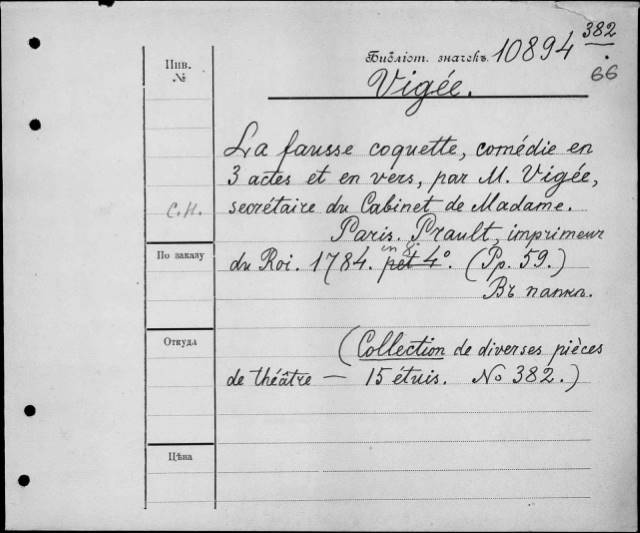 382
Библіот. значекъ 10894
66
Инв.
№
Vigée.
La fausse coquette, comédie en
3 actes et en vers, par M. Vigée,
С.Н.
secrétaire du Cabinet de Madame.
Paris. Prault, imprimeur
По заказу
in 8.
du Roi. 1784. pet 4°. (Pp. 59.)
Въ папкѣ.
Откуда
(Collection de diverses pièces
de théâtre — 15 étuis. No 382.)
Цѣна